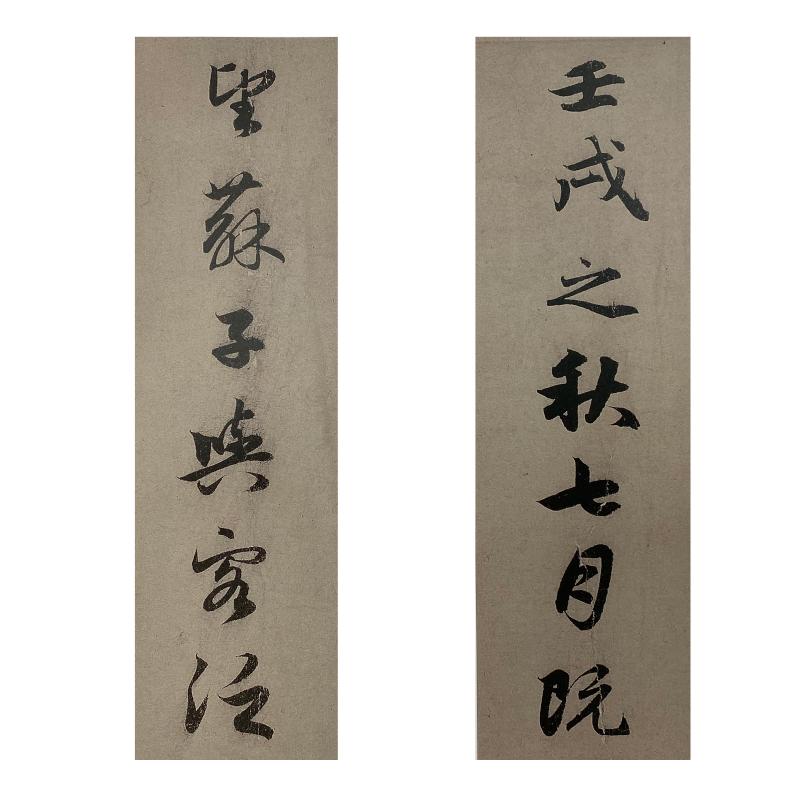 壬戌之秋七月既
望蘇子與客泛